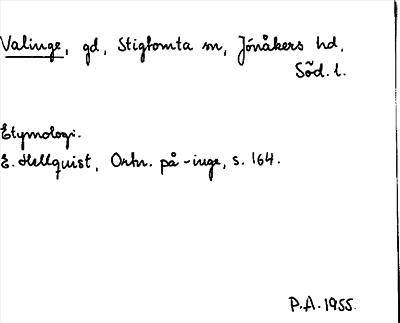 Valinge, gd, Stigtomta sn, Jönåkers hd,
Söd. l.
Etymologi.
E. Hellquist, Ortn. på -inge, s. 164.
P.A. 1955.